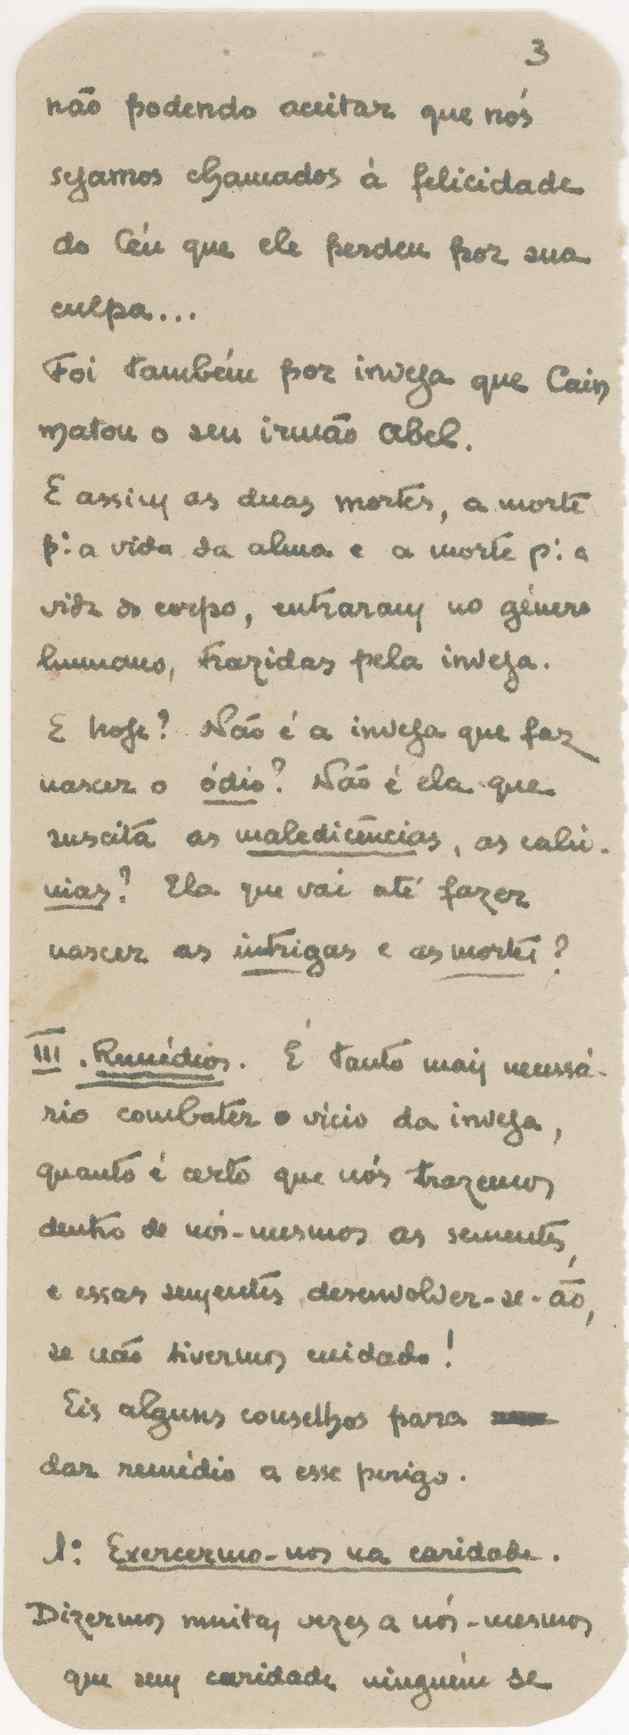 3
não podendo aceitar que nós
sejamos chamados à felicidade
do Céu que ele perdeu por sua
culpa...
Foi também por inveja que Caim
matou o seu irmão Abel.
E assim as duas mortes, a morte
p: a vida da alma e a morte p: a
vida do corpo, entraram no género
humano, trazidas pela inveja.
E hoje? Não é a inveja que faz
nascer o ódio? Não é ela que
suscita as maledicências, as calú-
nias? Ela que vai até fazer
nascer as intrigas e as mortes?
III. Remédios. É tanto mais necessá-
rio combater o vício da inveja,
quanto é certo que nós trazemos
dentro de nós-mesmos as sementes,
e essas sementes desenvolver-se-ão,
se não tivermos cuidado!
Eis alguns conselhos para
dar remédio a esse perigo.
1: Exercermo-nos na caridade.
Dizermos muitas vezes a nós-mesmos
que sem caridade ninguém se